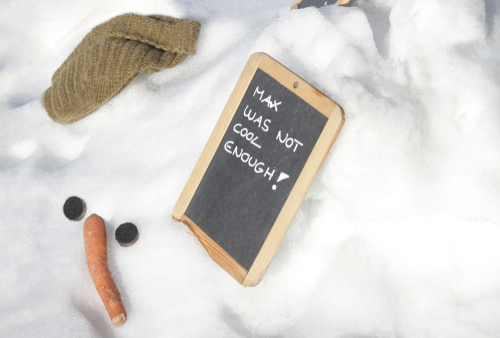 MAX
WAS NOT
COOL
ENOUGH!